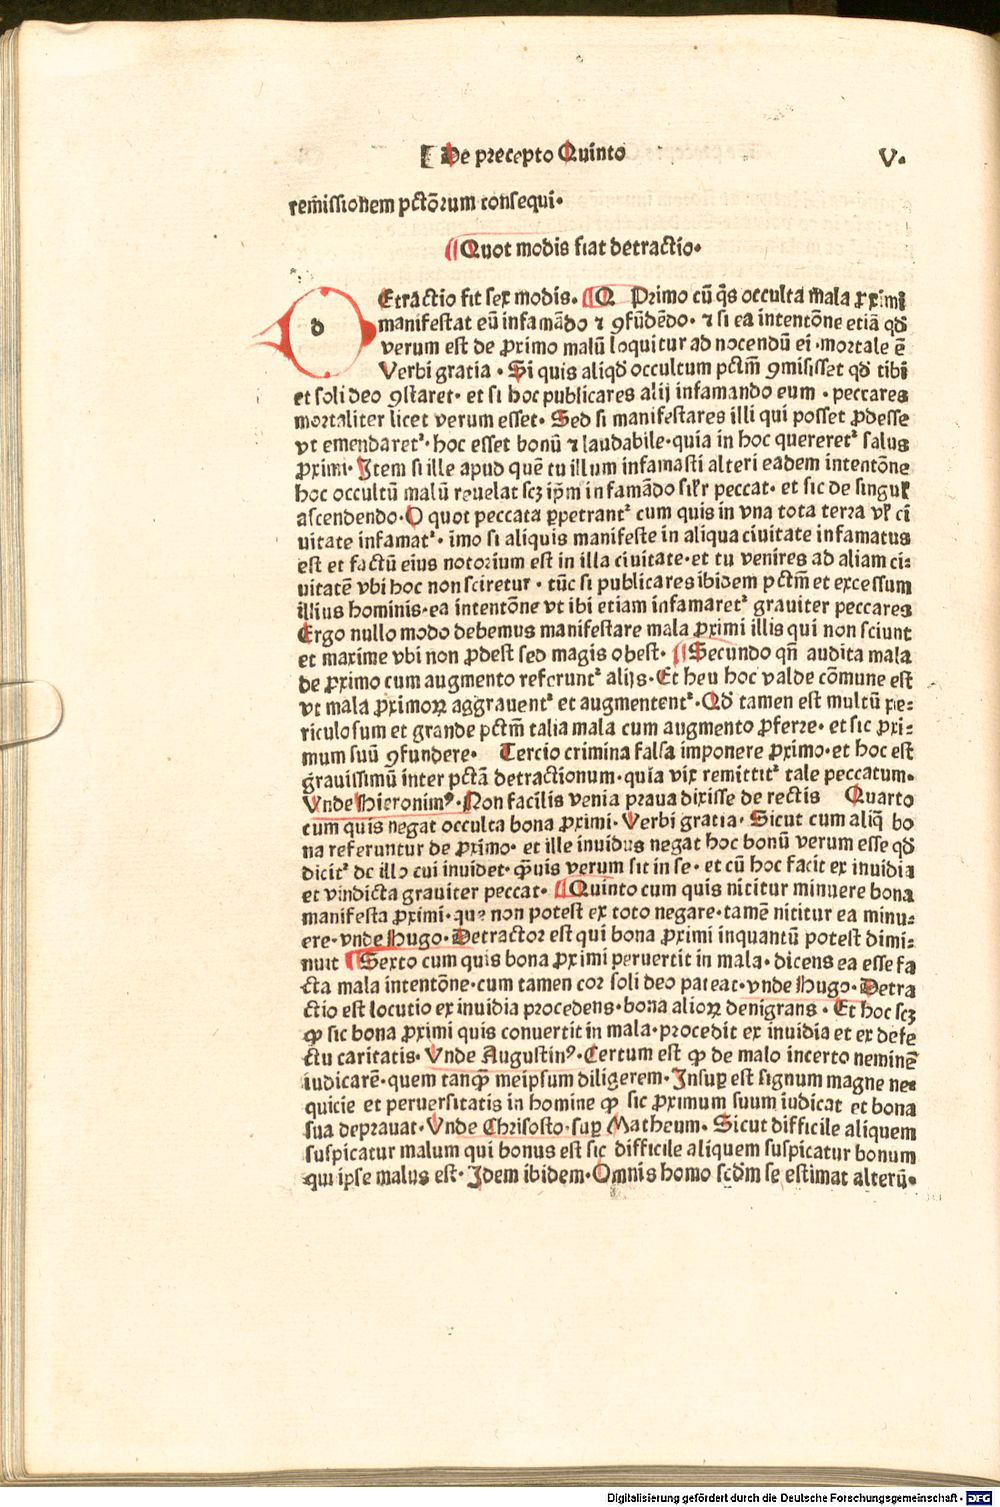 De precepto Quinto V.
remissionem pctōrum consequi.
Quot modis fiat detractio.
d
Etractio fit sex modis. Q Primo cū q̄s occulta mala ꝓximi
manifestat eū infamādo ⁊ ꝯfūdēdo. ⁊ si ea intentōne etiā qđ
verum est de ꝓximo malū loquitur ad nocendū ei .mortale ē
Verbi gratia . Si quis aliqđ occultum pctm̄ ꝯmisisset qđ tibi
et soli deo ꝯstaret. et si hoc publicares alij infamando eum . peccares
mortaliter licet verum esset. Sed si manifestares illi qui posset ꝓdesse
vt emendaret᷑. hoc esset bonū ⁊ laudabile. quia in hoc quereret᷑ salus
ꝓximi. Item si ille apud quē tu illum infamasti alteri eadem intentōne
hoc occultū malū reuelat scꝫ ip̄m infamādo sił'r peccat. et sic de singuł
ascendendo. O quot peccata ꝑpetrant᷑ cum quis in vna tota terra vł ci
uitate infamat᷑. īmo si aliquis manifeste in aliqua ciuitate infamatus
est et factū eius notorium est in illa ciuitate. et tu venires ad aliam ci⸗
uitatē vbi hoc non sciretur . tūc si publicares ibidem pctm̄ et excessum
illius hominis. ea intentōne vt ibi etiam infamaret᷑ grauiter peccares
Ergo nullo modo debemus manifestare mala ꝓximi illis qui non sciunt
et maxime vbi non ꝓdest sed magis obest. Secundo qn̄ audita mala
de ꝓximo cum augmento referunt᷑ alijs. Et heu hoc valde cōmune est
vt mala ꝓximoꝝ aggrauent᷑ et augmentent᷑. Qđ tamen est multū pe⸗
riculosum et grande pctm̄ talia mala cum augmento ꝓferre. et sic ꝓxi⸗
mum suū ꝯfundere. Tercio crimina falsa imponere ꝓximo. et hoc est
grauissimū inter pctā detractionum. quia vix remittit᷑ tale peccatum.
Vnde Hieronimꝰ. Non facilis venia praua dixisse de rectis Quarto
cum quis negat occulta bona ꝓximi. Verbi gratia. Sicut cum aliq̄ bo
na referuntur de ꝓximo. et ille inuidus negat hoc bonū verum esse qđ
dicit᷑ de illo cui inuidet. q̄uis verum sit in se. et cū hoc facit ex inuidia
et vindicta grauiter peccat. Quinto cum quis nititur minuere bona
manifesta ꝓximi. que non potest ex toto negare. tamē nititur ea minu⸗
ere. vnde Hugo. Detractor est qui bona ꝓximi inquantū potest dimi⸗
nuit Sexto cum quis bona ꝓximi peruertit in mala. dicens ea esse fa
cta mala intentōne. cum tamen cor soli deo pateat. vnde Hugo. Detra
ctio est locutio ex inuidia procedens. bona alioꝝ denigrans . Et hoc scꝫ
ꝙ sic bona ꝓximi quis conuertit in mala. procedit ex inuidia et ex defe
ctu caritatis. Vnde Augustinꝰ. Certum est ꝙ de malo incerto neminē
iudicarē. quem tanq̄ meipsum diligerem. Insuꝑ est signum magne ne⸗
quicie et peruersitatis in homine ꝙ sic ꝓximum suum iudicat et bona
sua deprauat. Vnde Chrisosto. suꝑ Matheum. Sicut difficile aliquem
suspicatur malum qui bonus est sic difficile aliquem suspicatur bonum
qui ipse malus est. Idem ibidem. Omnis homo scdm̄ se estimat alterū.
Digitalisierung gefördert durch die Deutsche Forschungsgemeinschaft - DFG